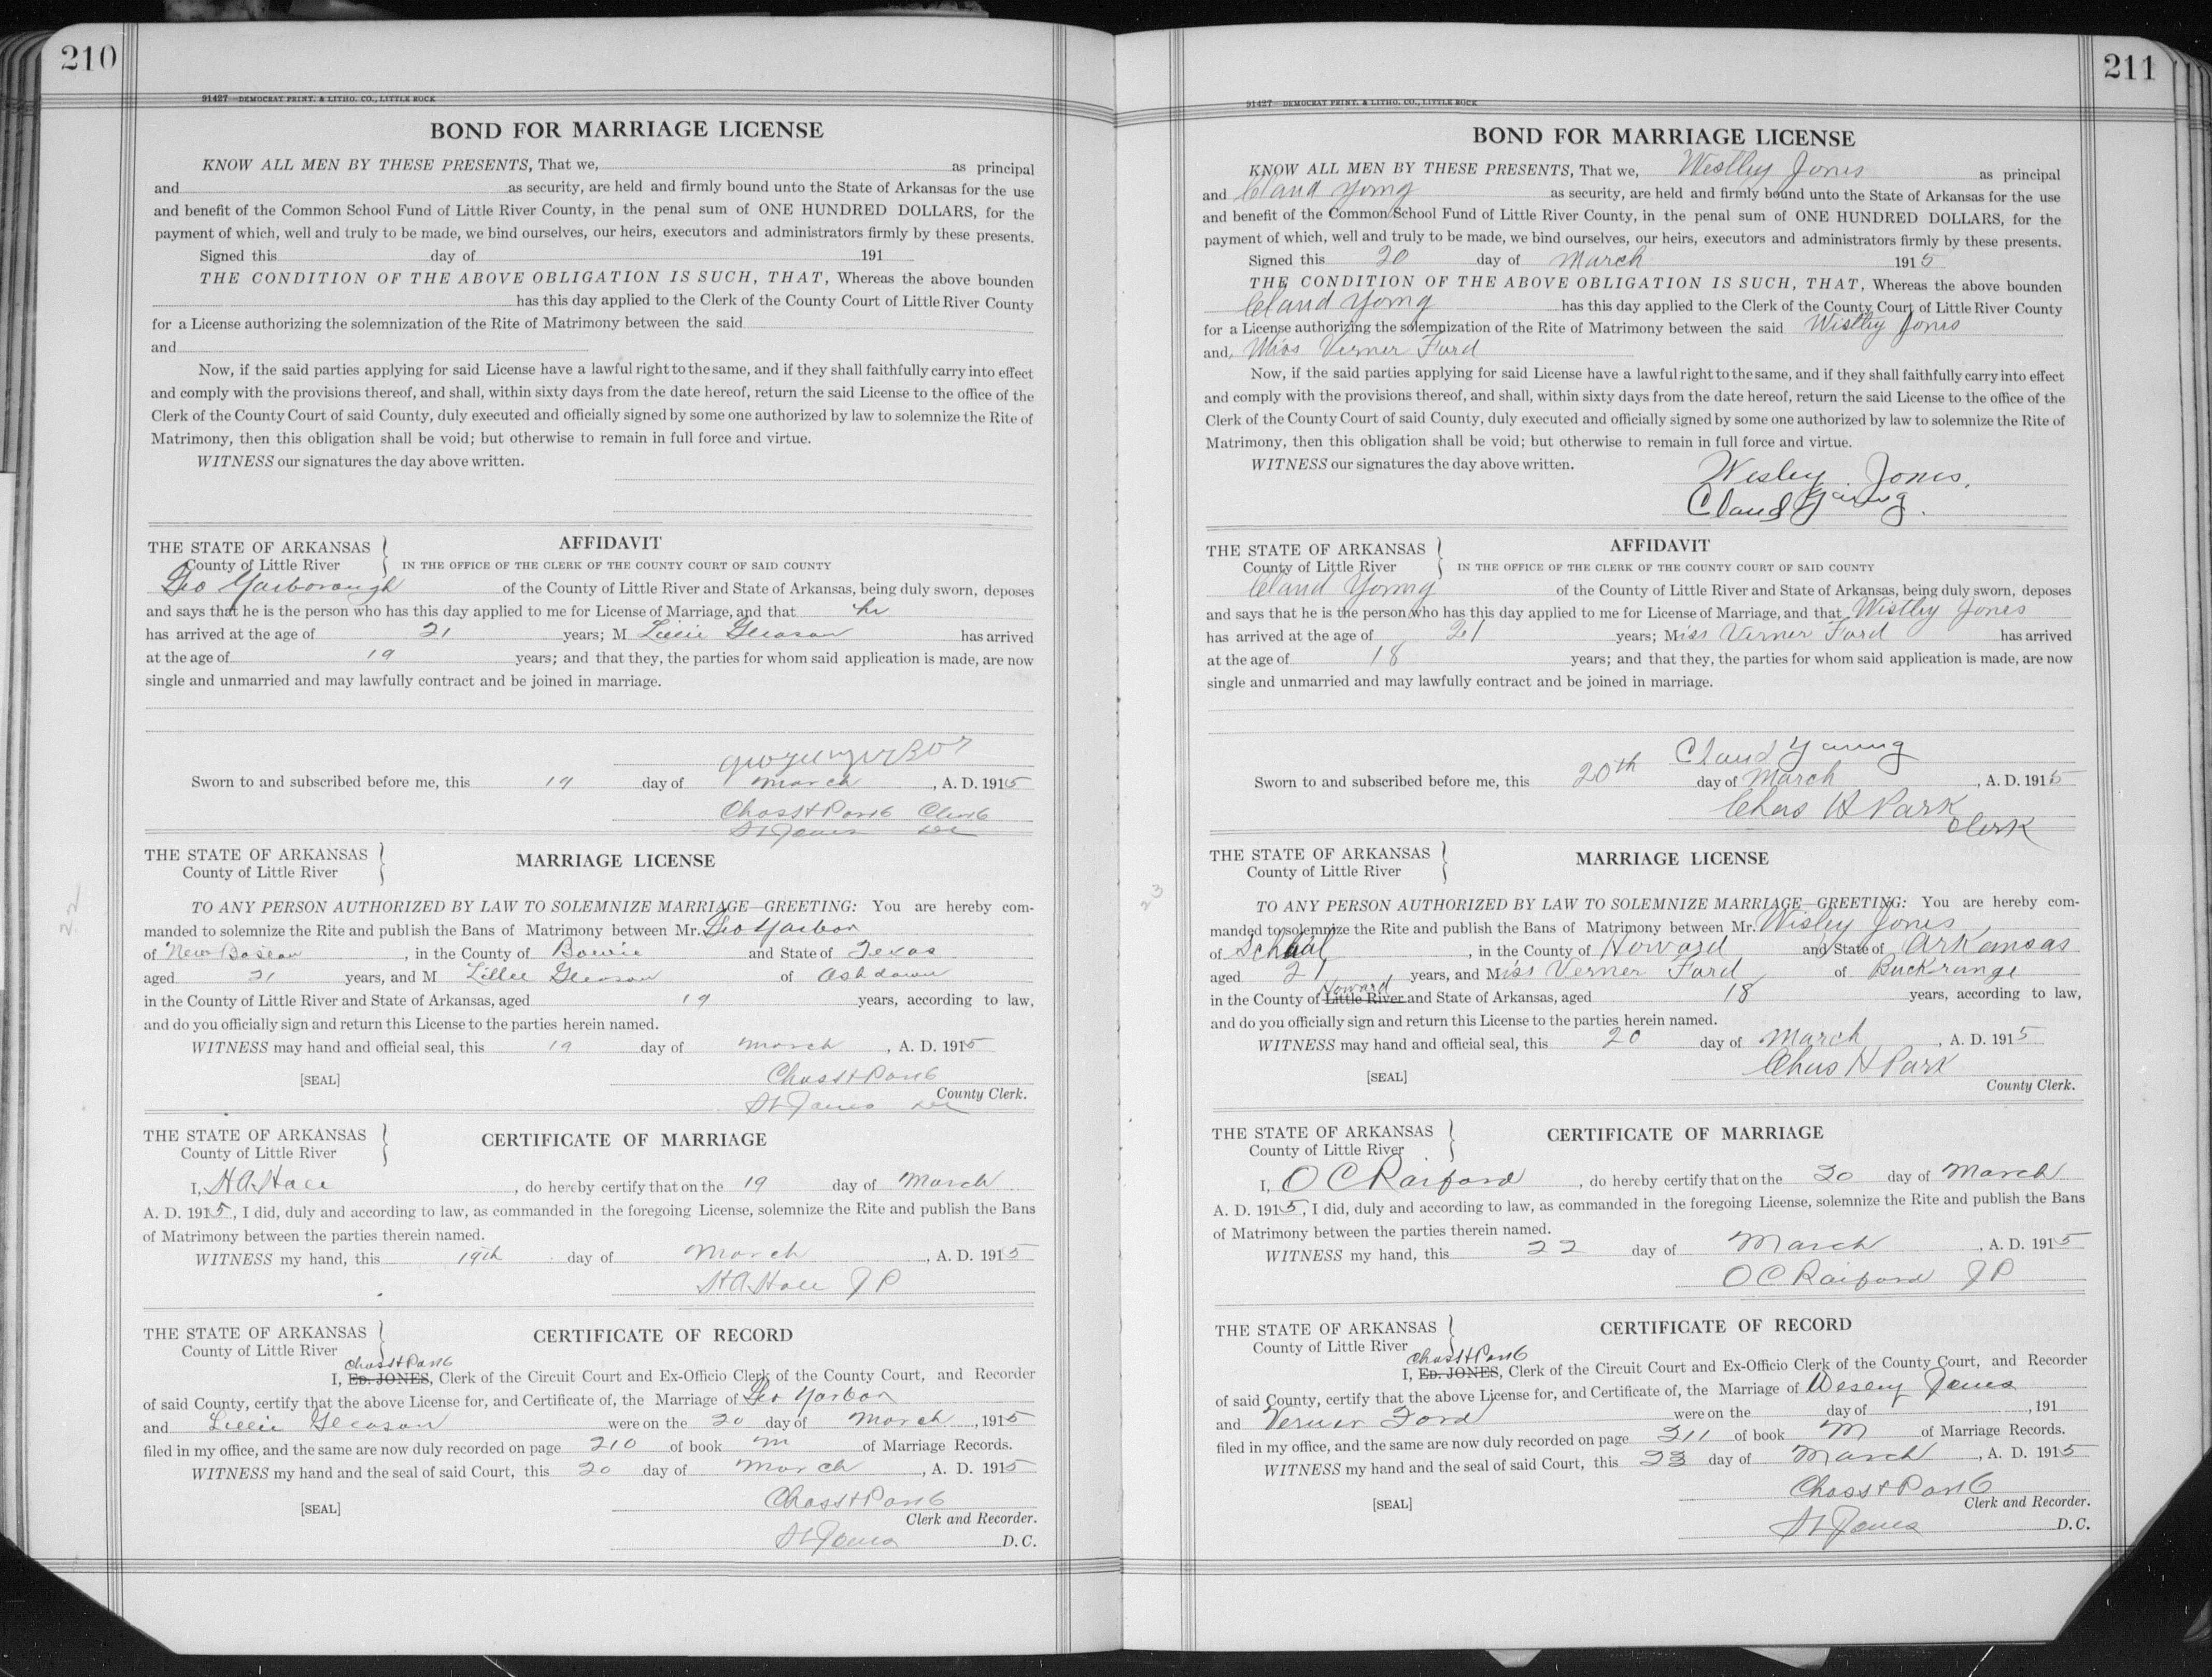 210
91427—DEMOCRAT PRINT. & LITHO. CO., LITTLE ROCK
BOND FOR MARRIAGE LICENSE
KNOW ALL MEN BY THESE PRESENTS, That we, as principal
and as security, are held and firmly bound unto the State of Arkansas for the use
and benefit of the Common School Fund of Little River County, in the penal sum of ONE HUNDRED DOLLARS, for the
payment of which, well and truly to be made, we bind ourselves, our heirs, executors and administrators firmly by these presents.
Signed this day of 191
THE CONDITION OF THE ABOVE OBLIGATION IS SUCH, THAT, Whereas the above bounden
has this day applied to the Clerk of the County Court of Little River County
for a License authorizing the solemnization of the Rite of Matrimony between the said
and
Now, if the said parties applying for said License have a lawful right to the same, and if they shall faithfully carry into effect
and comply with the provisions thereof, and shall, within sixty days from the date hereof, return the said License to the office of the
Clerk of the County Court of said County, duly executed and officially signed by some one authorized by law to solemnize the Rite of
Matrimony, then this obligation shall be void; but otherwise to remain in full force and virtue.
WITNESS our signatures the day above written.
THE STATE OF ARKANSAS
County of Little River
AFFIDAVIT
IN THE OFFICE OF THE CLERK OF THE COUNTY COURT OF SAID COUNTY
Geo Yarborough of the County of Little River and State of Arkansas, being duly sworn, deposes
and says that he is the person who has this day applied to me for License of Marriage, and that he
has arrived at the age of 21 years; M Lillie Gleason has arrived
at the age of 19 years; and that they, the parties for whom said application is made, are now
single and unmarried and may lawfully contract and be joined in marriage.
Sworn to and subscribed before me, this 19 day of March, A. D. 1915
Chas H Park Clerk
THE STATE OF ARKANSAS
County of Little River
MARRIAGE LICENSE
TO ANY PERSON AUTHORIZED BY LAW TO SOLEMNIZE MARRIAGE—GREETING: You are hereby com-
manded to solemnize the Rite and publish the Bans of Matrimony between Mr. Geo Yarbor
of New Boston, in the County of Bowie and State of Texas
aged 21 years, and M Lillie Gleason of Ashdown
in the County of Little River and State of Arkansas, aged 19 years, according to law,
and do you officially sign and return this License to the parties herein named.
WITNESS may hand and official seal, this 19 day of March, A. D. 1915
[SEAL]
Chas H Park
County Clerk.
22
THE STATE OF ARKANSAS
County of Little River
CERTIFICATE OF MARRIAGE
I, H A Hale, do hereby certify that on the 19 day of March
A. D. 1915, I did, duly and according to law, as commanded in the foregoing License, solemnize the Rite and publish the Bans
of Matrimony between the parties therein named.
WITNESS my hand, this 19th day of March, A. D. 1915
H A Hale J P
THE STATE OF ARKANSAS
County of Little River
CERTIFICATE OF RECORD
Chas H Park
I, ED. JONES, Clerk of the Circuit Court and Ex-Officio Clerk of the County Court, and Recorder
of said County, certify that the above License for, and Certificate of, the Marriage of Geo Yarbor
and Lillie Gleason were on the 20 day of March, 1915
filed in my office, and the same are now duly recorded on page 210 of book M of Marriage Records.
WITNESS my hand and the seal of said Court, this 20 day of March, A. D. 1915
[SEAL]
Chas H Park
Clerk and Recorder.
D.C.
211
91427—DEMOCRAT PRINT. & LITHO. CO., LITTLE ROCK
BOND FOR MARRIAGE LICENSE
KNOW ALL MEN BY THESE PRESENTS, That we, Westley Jones as principal
and Claud Yorng as security, are held and firmly bound unto the State of Arkansas for the use
and benefit of the Common School Fund of Little River County, in the penal sum of ONE HUNDRED DOLLARS, for the
payment of which, well and truly to be made, we bind ourselves, our heirs, executors and administrators firmly by these presents.
Signed this 20 day of March 1915
THE CONDITION OF THE ABOVE OBLIGATION IS SUCH, THAT, Whereas the above bounden
Claud Yorng has this day applied to the Clerk of the County Court of Little River County
for a License authorizing the solemnization of the Rite of Matrimony between the said Westley Jones
and, Miss Verner Ford
Now, if the said parties applying for said License have a lawful right to the same, and if they shall faithfully carry into effect
and comply with the provisions thereof, and shall, within sixty days from the date hereof, return the said License to the office of the
Clerk of the County Court of said County, duly executed and officially signed by some one authorized by law to solemnize the Rite of
Matrimony, then this obligation shall be void; but otherwise to remain in full force and virtue.
WITNESS our signatures the day above written.
Wesley Jones.
Claud Young.
THE STATE OF ARKANSAS
County of Little River
AFFIDAVIT
IN THE OFFICE OF THE CLERK OF THE COUNTY COURT OF SAID COUNTY
Claud Yorng of the County of Little River and State of Arkansas, being duly sworn, deposes
and says that he is the person who has this day applied to me for License of Marriage, and that Westley Jones
has arrived at the age of 21 years; Miss Verner Ford has arrived
at the age of 18 years; and that they, the parties for whom said application is made, are now
single and unmarried and may lawfully contract and be joined in marriage.
Claud Young
Sworn to and subscribed before me, this 20th day of March, A. D. 1915
Chas H Park
Clerk
THE STATE OF ARKANSAS
County of Little River
MARRIAGE LICENSE
23
TO ANY PERSON AUTHORIZED BY LAW TO SOLEMNIZE MARRIAGE—GREETING: You are hereby com-
manded to solemnize the Rite and publish the Bans of Matrimony between Mr. Wisley Jones
of Schaal, in the County of Howard and State of Arkansas
aged 21 years, and Miss Verner Ford of Buckrange
Howard
in the County of Little River and State of Arkansas, aged 18 years, according to law,
and do you officially sign and return this License to the parties herein named.
WITNESS may hand and official seal, this 20 day of March, A. D. 1915
[SEAL]
Chas H Park
County Clerk.
THE STATE OF ARKANSAS
County of Little River
CERTIFICATE OF MARRIAGE
I, O C Raiford, do hereby certify that on the 20 day of March
A. D. 1915, I did, duly and according to law, as commanded in the foregoing License, solemnize the Rite and publish the Bans
of Matrimony between the parties therein named.
WITNESS my hand, this 22 day of March, A. D. 1915
O C Raiford J P
THE STATE OF ARKANSAS
County of Little River
CERTIFICATE OF RECORD
Chas H Park
I, ED. JONES, Clerk of the Circuit Court and Ex-Officio Clerk of the County Court, and Recorder
of said County, certify that the above License for, and Certificate of, the Marriage of Wesley Jones
and Verner Ford were on the day of , 191
filed in my office, and the same are now duly recorded on page 211 of book M of Marriage Records.
WITNESS my hand and the seal of said Court, this 23 day of March, A. D. 1915
[SEAL]
Chas H Park
Clerk and Recorder.
D.C.